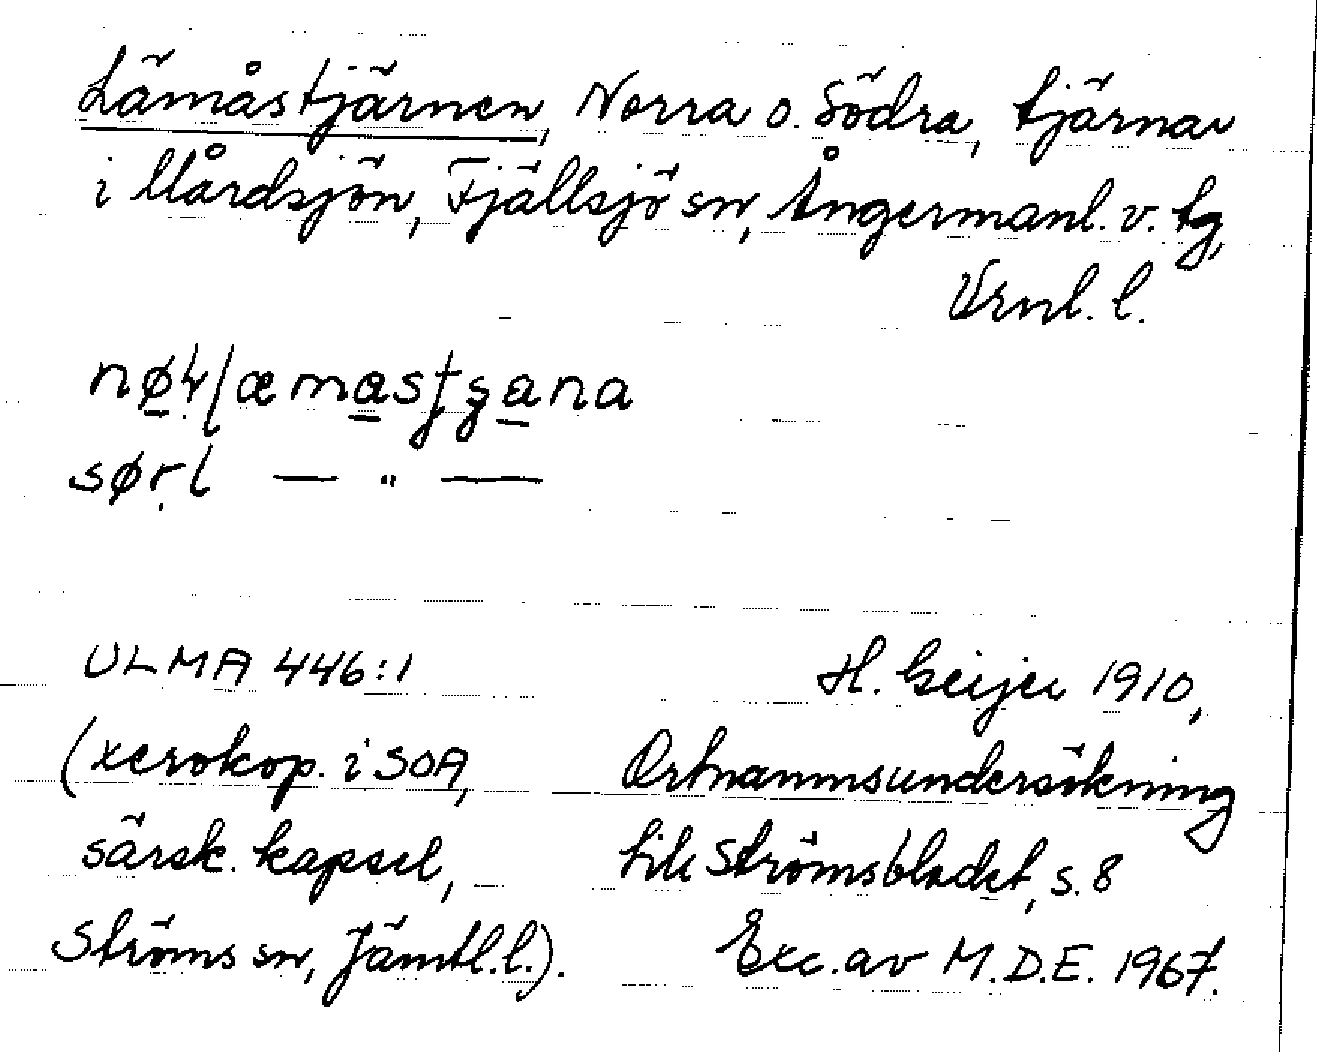 Lämåstjärnen, Norra o. Södra, tjärnar
i Mårdsjön, Fjällsjö sn, Ångermanl. v. tg,
Vrnl. l.
sør̩l — " —
ULMA 446:1
H. Geijer 1910,
(xerokop. i SOA,
Ortnamnsundersökning
särsk. kapsel,
till Strömsbladet, s. 8
Ströms sn, Jämtl. l.).
Exc. av M.D.E. 1967.